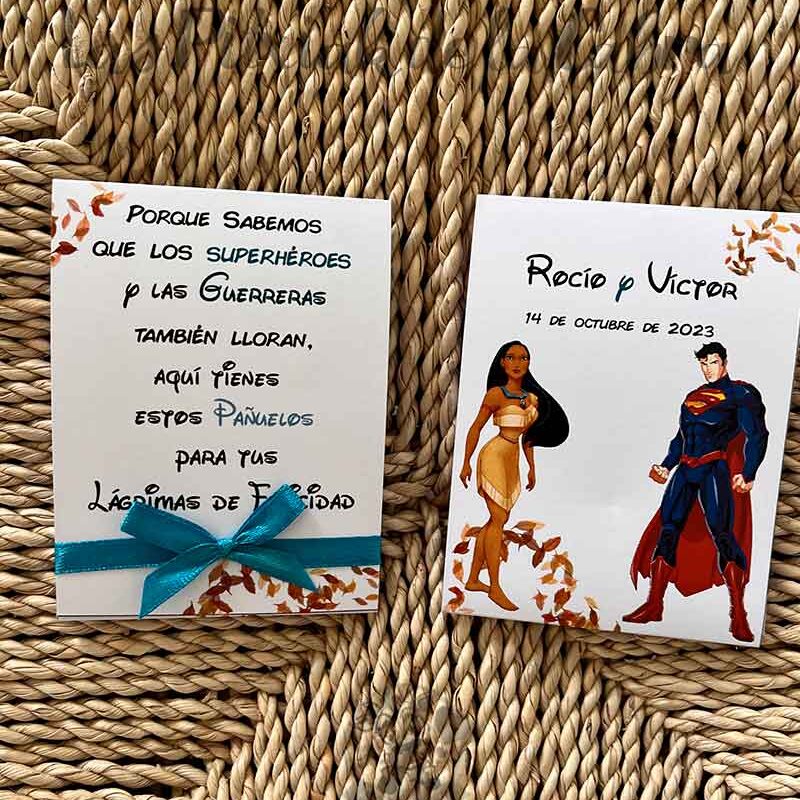 Porque Sabemos
que los superhéroes
y las Guerreras
también lloran,
aquí tienes
estos Pañuelos
para tus
Lágrimas de Felicidad
Rocío y Víctor
14 de octubre de 2023